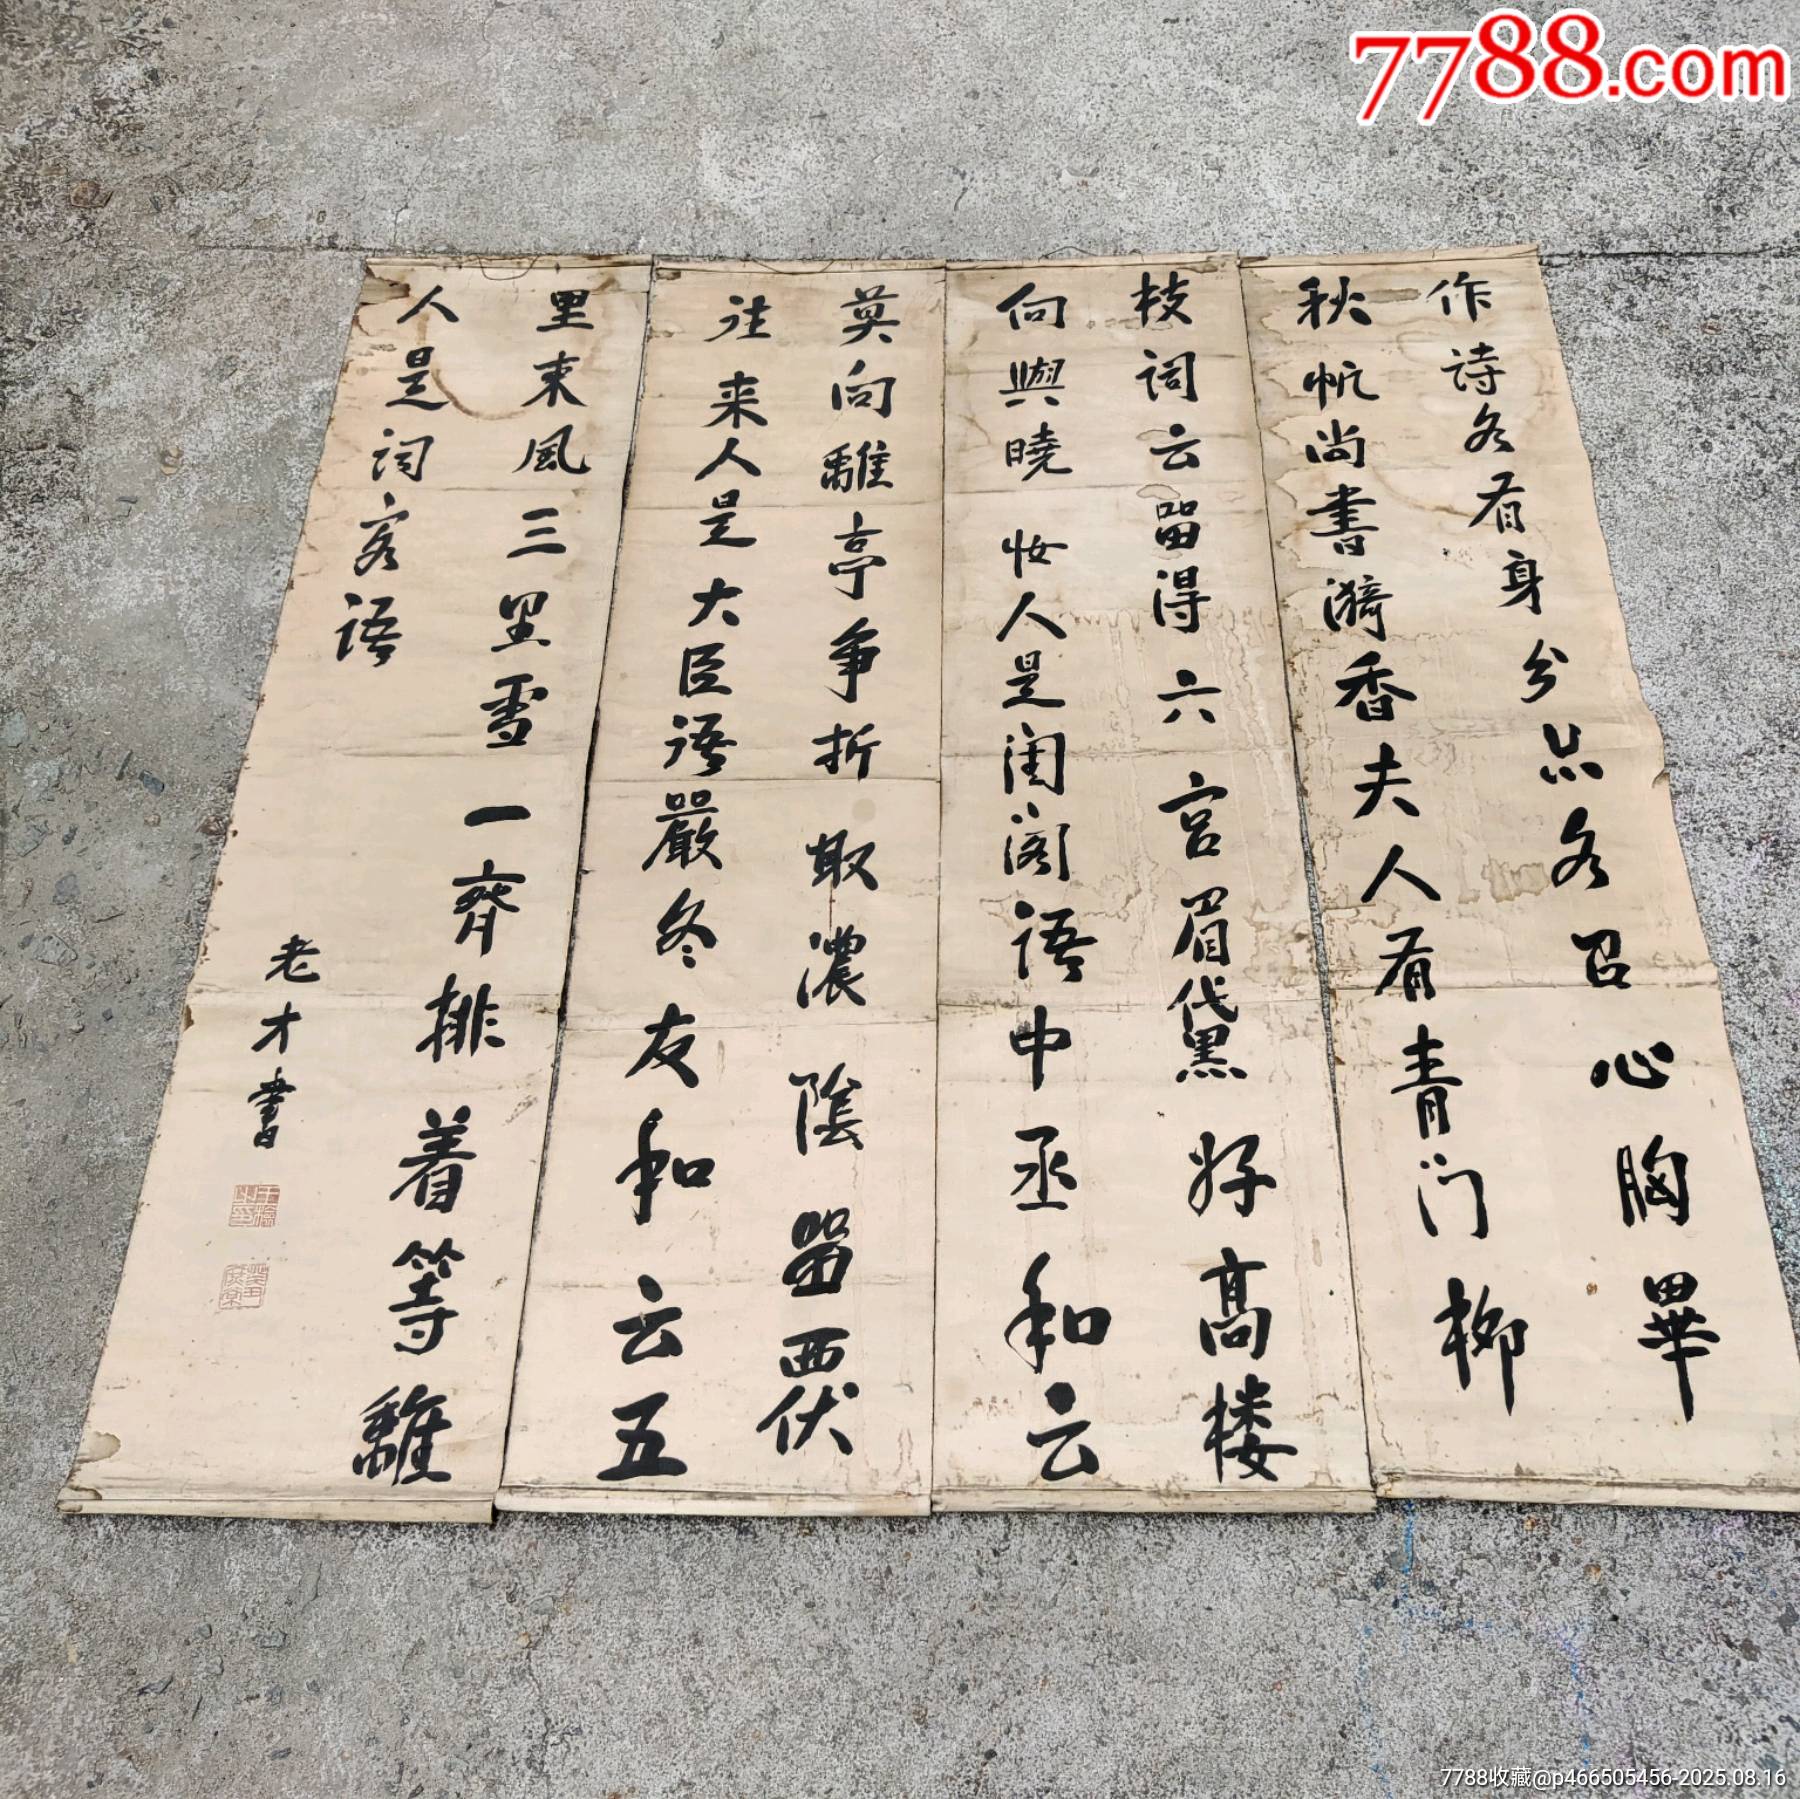 作詩各有身分然各召心胸畢
秋帆尚書漪香夫人有青门柳
枝詞云留得六宮眉黛好高楼
向與曉妝人是闺阁語中丞和云
莫向離亭争折取濃陰留覆
往来人是大臣語嚴冬友和云五
里東風三里雪一齊排着等離
人是詞客語
老才書
7788.com
7788收藏@p466505456-2025.08.16